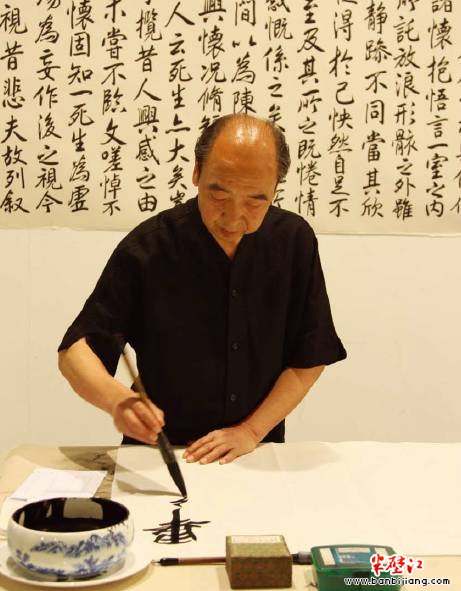 諸懷抱悟言一室之内
所託放浪形骸之外雖
静躁不同當其欣
得於己快然自足不
至及其所之既惓情
感慨係之矣
間以為陳
興懷况脩
人云死生亦大矣
攬昔人興感之由
未嘗不臨文嗟悼不
懷固知一死生為虛
殤為妄作後之視今
視昔悲夫故列叙
半壁江
www.banbijiang.com